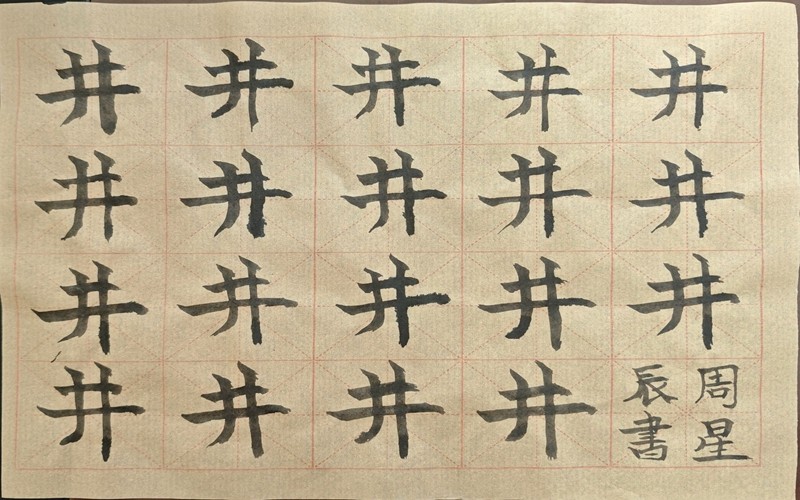 井 井 井 井 井
井 井 井 井 井
井 井 井 井 井
井 井 井 井
周星
辰書